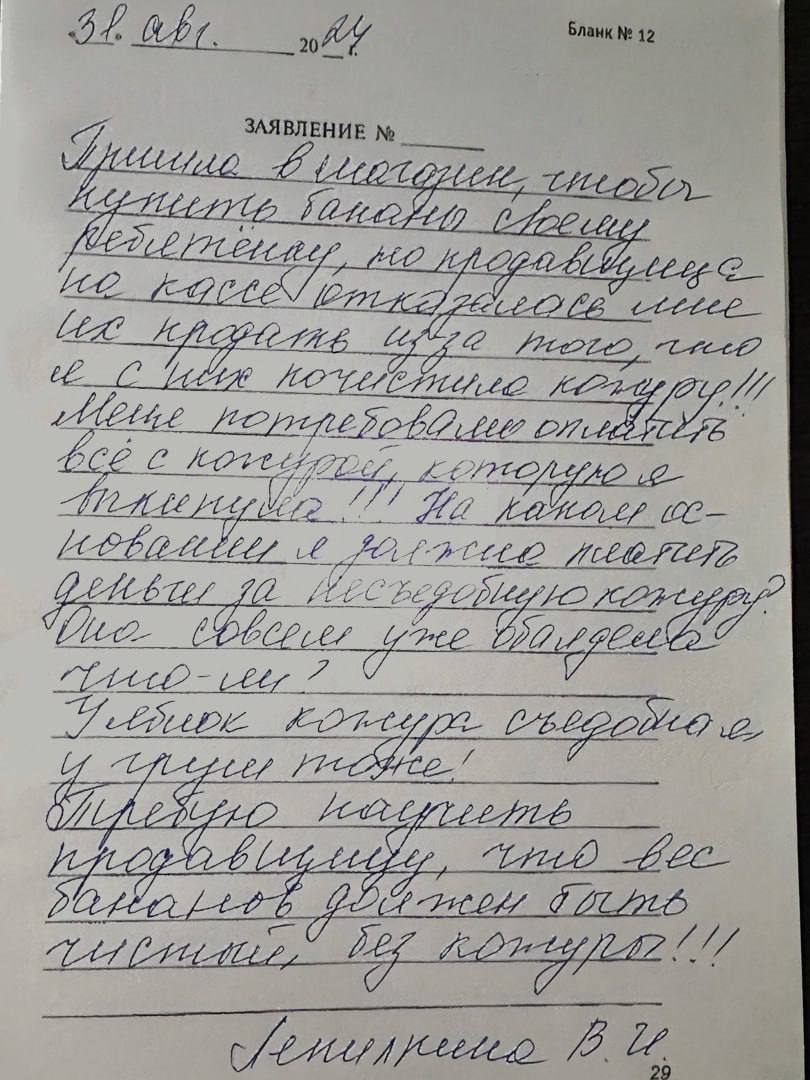 "31" авг. 2024 г.
Бланк № 12
ЗАЯВЛЕНИЕ №
Пришла в магазин, чтобы
купить бананы своему
ребятёнку, но продавщица
на кассе отказалась мне
их продать из за того, что
я с них почистила кожуру!!!
Меня потребовали оплатить
всё с кожурой, которую я
выкинула!!! На каком ос-
новании я должна платить
деньги за несъедобную кожуру?
Она совсем уже обалдела
что-ли?
У яблок кожура съедобная,
у груш тоже!
Требую научить
продавщицу, что вес
бананов должен быть
чистый, без кожуры!!!
В. И.
29